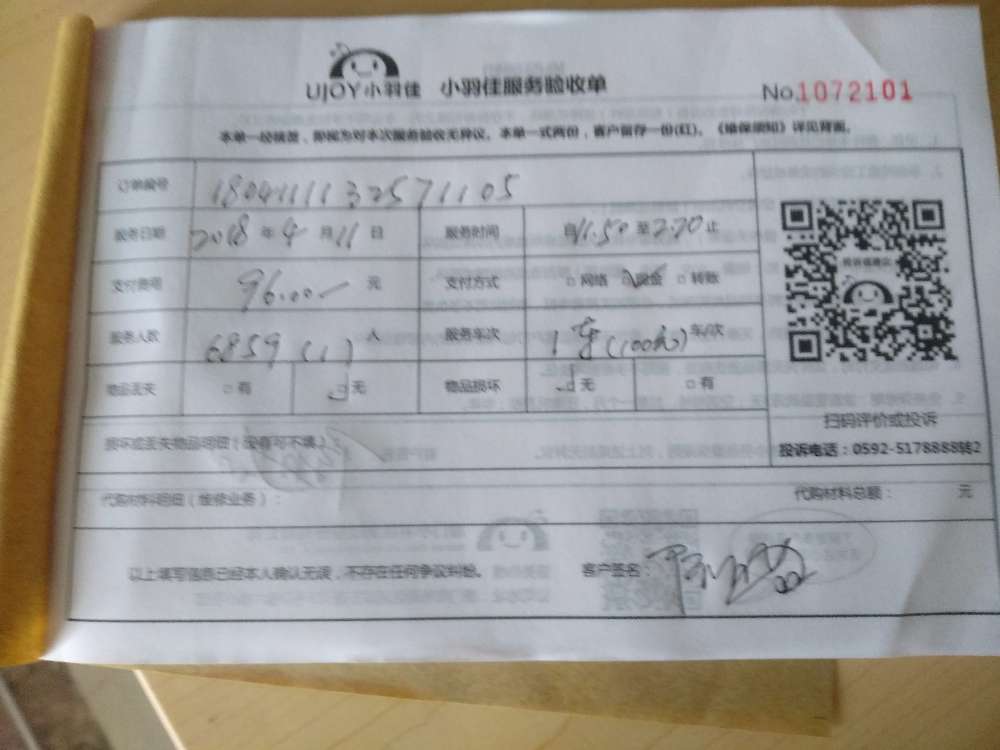 UJOY小羽佳 小羽佳服务验收单
No.1072101
本单一经核签，即视为对本次服务验收无异议。本单一式两份，客户留存一份(红)。《维保须知》详见背面。
订单编号 18041111332571105
服务日期 2018年4月11日 服务时间 自11.50至2.20止
支付费用 96.00 元 支付方式 □网络 □现金 □转账
服务人数 6859 (1) 人 服务车次 1车(100元)车/次
物品丢失 □有 □无 物品损坏 □无 □有
扫码评价或投诉
损坏或丢失物品明细（没有可不填）：
投诉电话：0592-5178888转2
代购材料明细（维修业务）： 代购材料总额： 元
以上填写信息已经本人确认无误，不存在任何争议纠纷。 客户签名：